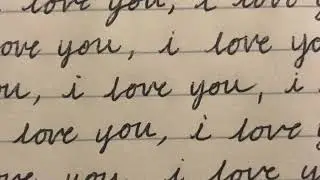 i love you, i love you
love you, i love you
you, i love you, i
love you, i love y
love you, i love